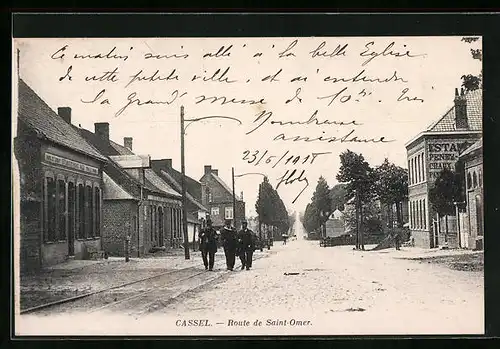 Ce matin suis allé à la belle Eglise
de cette petite ville, et ai entendu
la Grand' messe de 10h. Très
Nombreuse
assistance
23/6/1918
ESTAM
CASSEL. — Route de Saint-Omer.